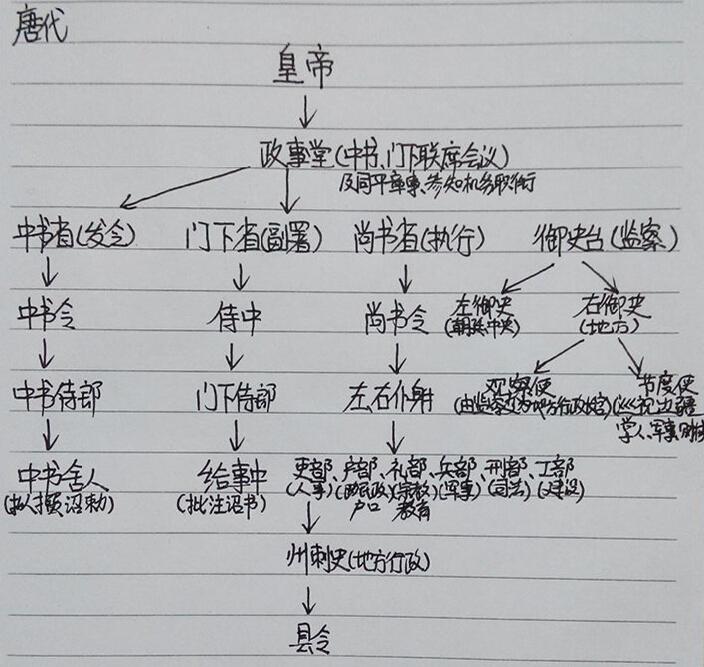 唐代
皇帝
政事堂(中书、门下联席会议)
及同平章事、参知机务职衔
中书省(发令) 门下省(副署) 尚书省(执行) 御史台(监察)
中书令 侍中 尚书令 左御史 右御史
(朝廷中央) (地方)
中书侍郎 门下侍郎 左右仆射 观察使 节度使
(由监察 为地方行政长官) (巡视边疆
军事、财政
中书舍人 给事中 吏部、户部、礼部、兵部、刑部、工部
(拟撰诏敕) (批注诏书) (人事) (民政 (宗教 (军事) (司法) (建设)
户口 教育
州刺史(地方行政)
县令